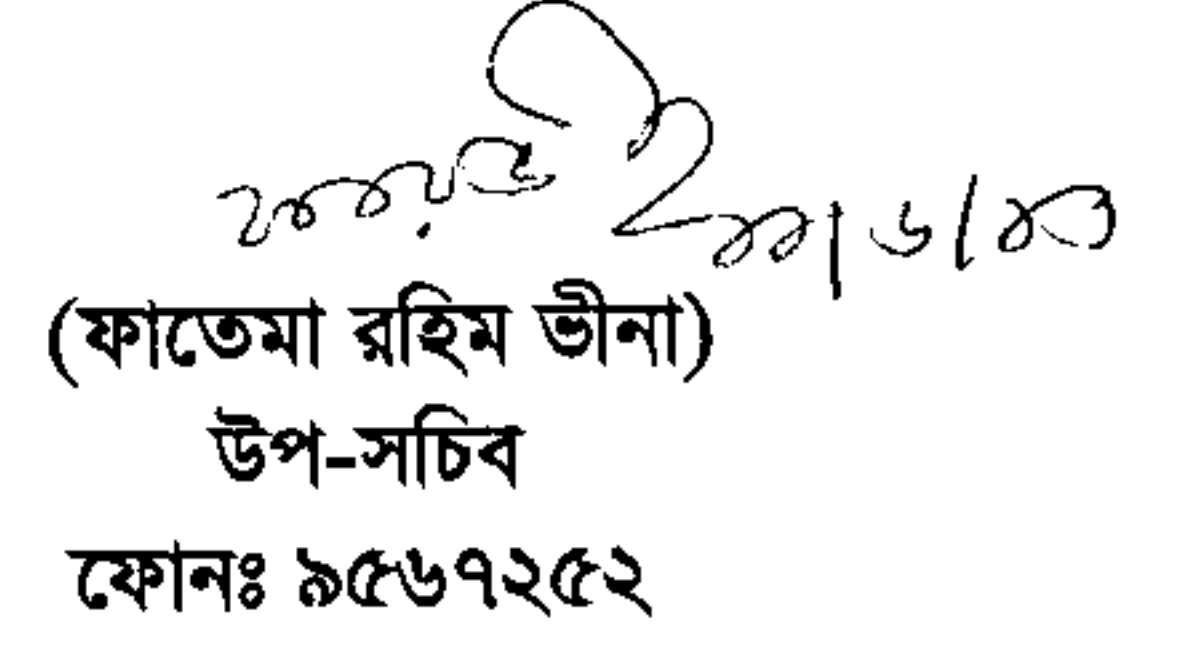 (ফাতেমা রহিম ভীনা)
উপ-সচিব
ফোনঃ ৯৫৬৭২৫২